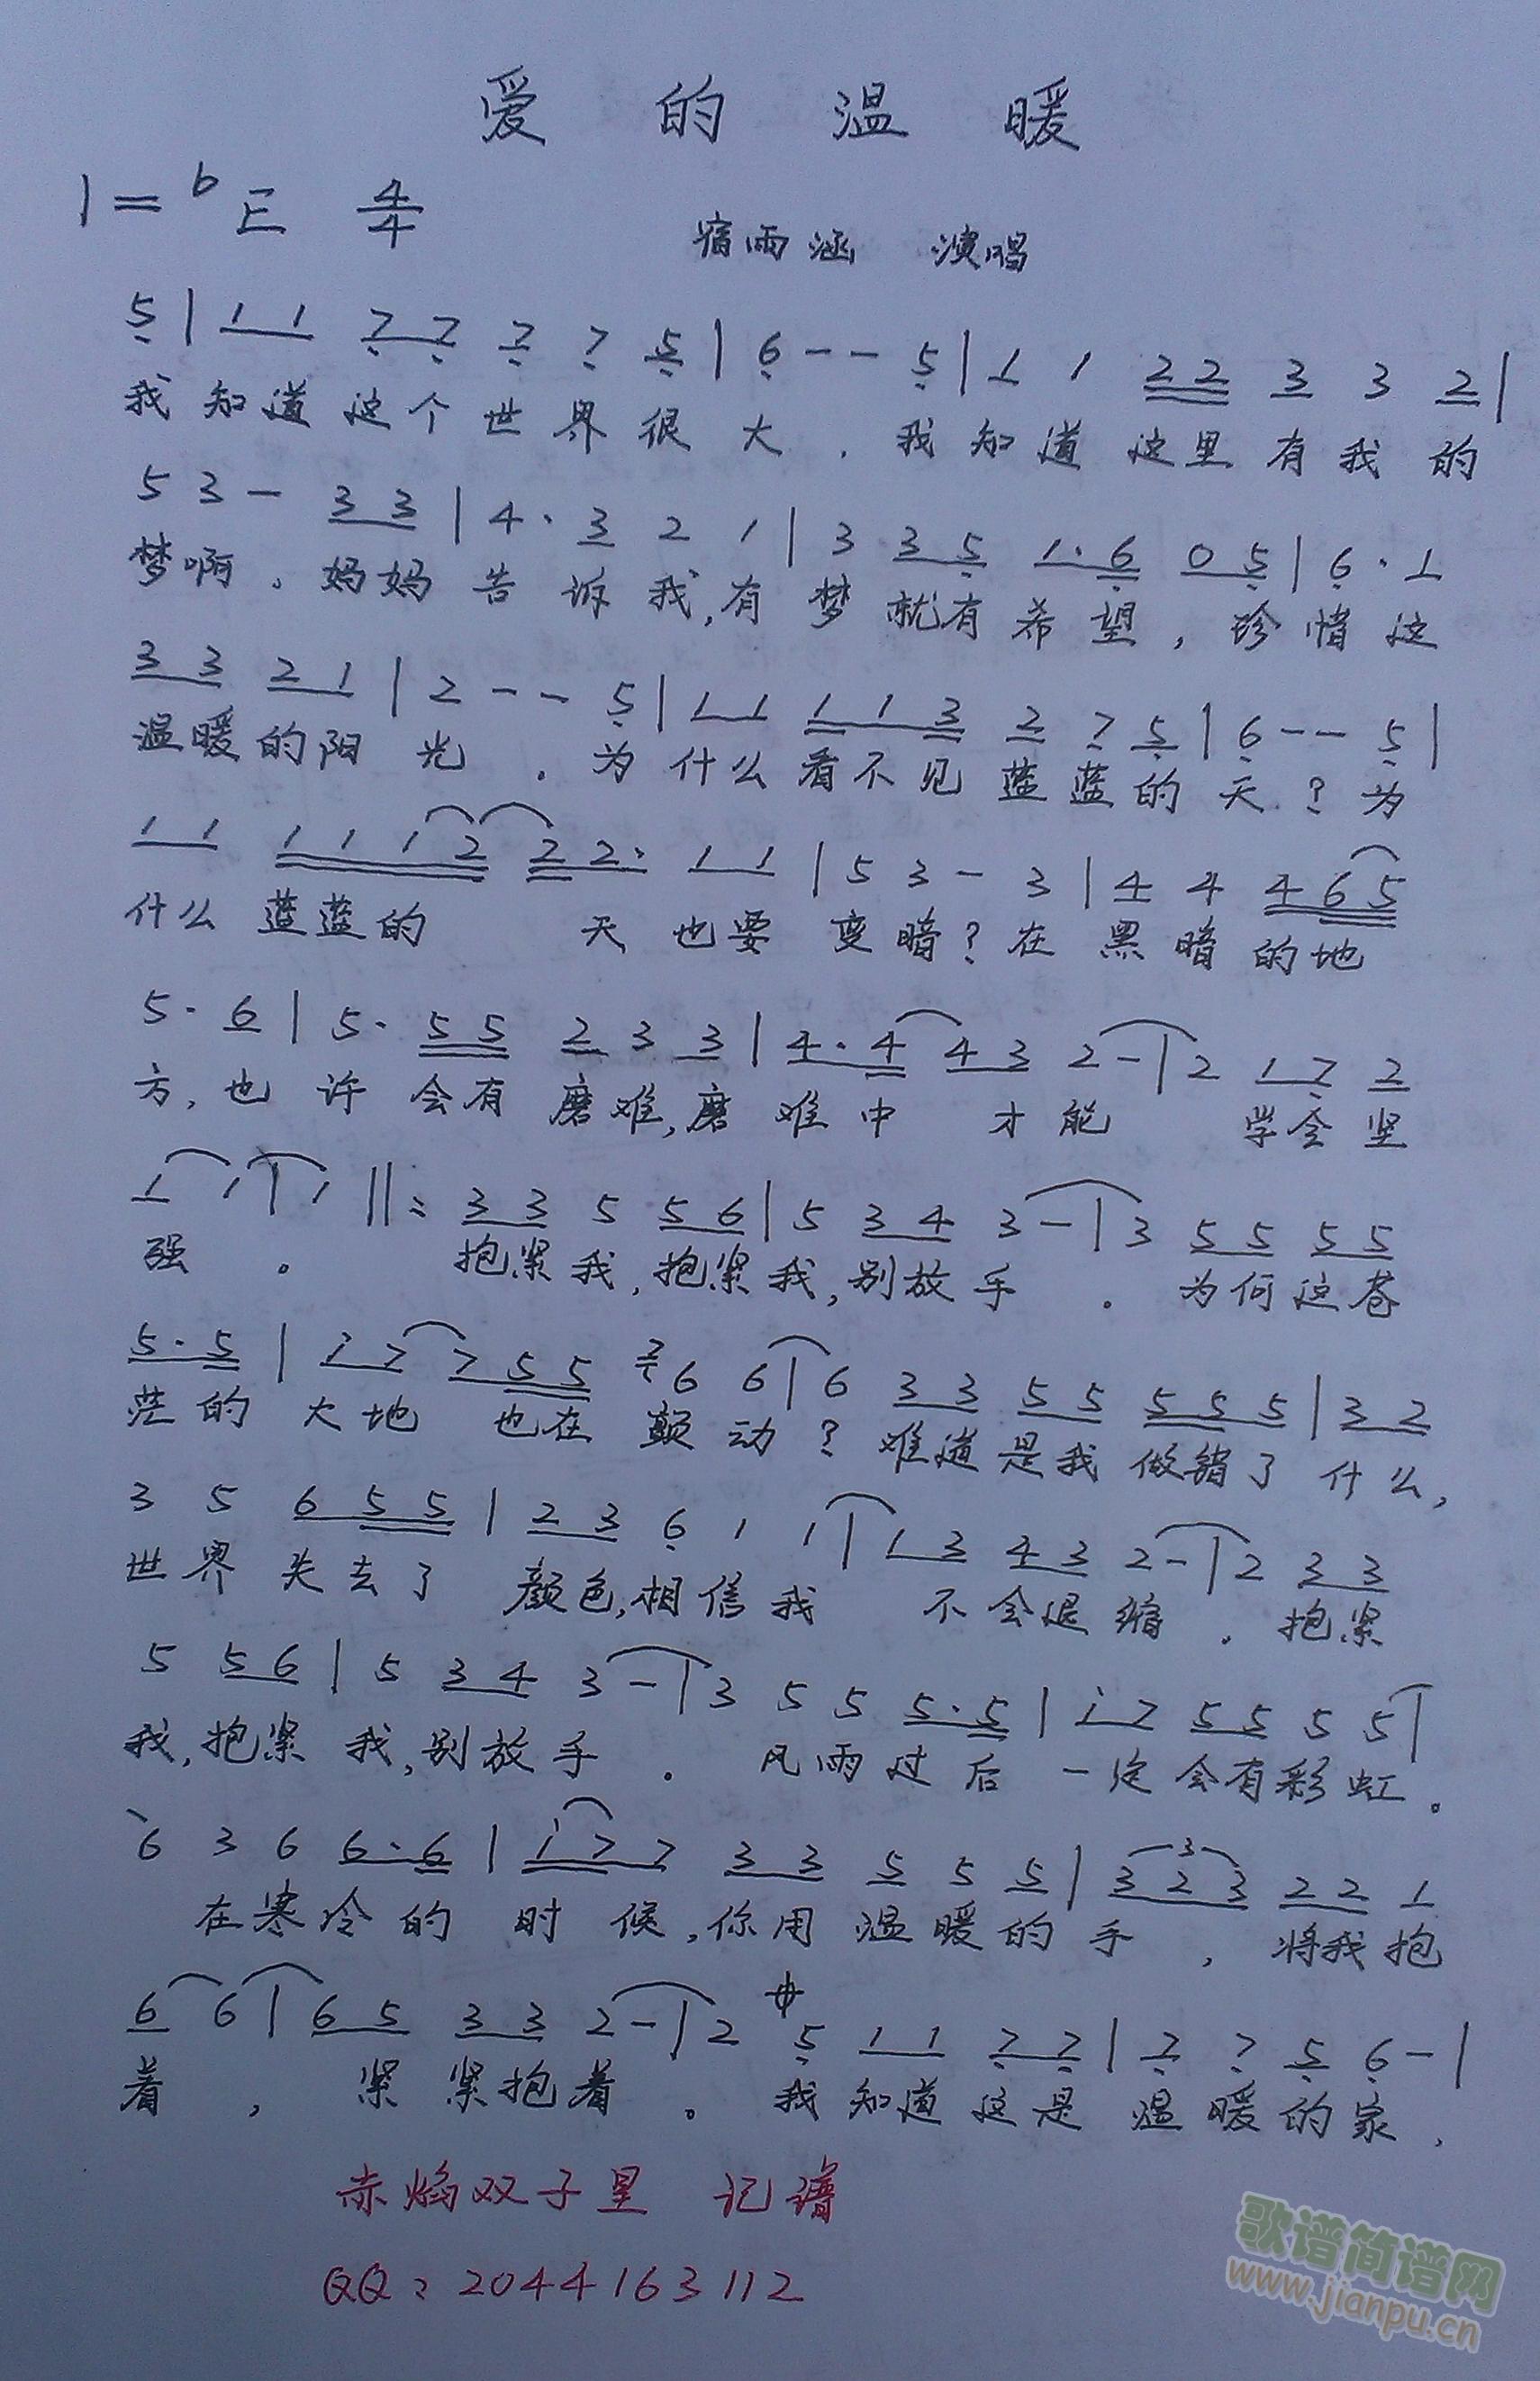 爱的温暖
1=bE 4/4
宿雨涵 演唱
5|1 1 7 7 7 7 5|6 - - 5|1 1 2 2 3 3 2|
我知道这个世界很大.我知道这里有我的
5 3 - 3 3|4· 3 2 1|3 3 5 1·6 0 5|6· 1
梦啊。妈妈告诉我,有梦就有希望,珍惜这
3 3 2 1|2 - - 5|1 1 1 1 3 2 7 5|6 - - 5|
温暖的阳光.为什么看不见蓝蓝的天?为
1 1 1 1 1 2 2 2· 1 1|5 3 - 3|4 4 4 6 5
什么蓝蓝的天也要变暗?在黑暗的地
5· 6|5· 5 5 2 3 3|4·4 4 3 2 -|2 1 7 2
方,也许会有磨难,磨难中才能学会坚
1 1|1 ‖: 3 3 5 5 6|5 3 4 3 -|3 5 5 5 5
强。抱紧我,抱紧我,别放手。为何这苍
5·5|i 7 7 5 5 7 6 6|6 3 3 5 5 5 5 5|3 2
茫的大地也在颤动?难道是我做错了什么,
3 5 6 5 5|2 3 6 1 1|1 3 4 3 2 -|2 3 3
世界失去了颜色,相信我不会退缩.抱紧
5 5 6|5 3 4 3 -|3 5 5 5·5|i 7 5 5 5 5|
我,抱紧我,别放手。风雨过后一定会有彩虹。
6 3 6 6·6|i 7 7 3 3 5 5 5|3 2 3 2 2 1
在寒冷的时候,你用温暖的手,将我抱
6 6|6 5 3 3 2 -|2 5 1 1 7 7|7 7 5 6 -|
着,紧紧抱着。我知道这是温暖的家,
赤焰双子星 记谱
QQ:2044163112
歌谱简谱网
www.jianpu.cn